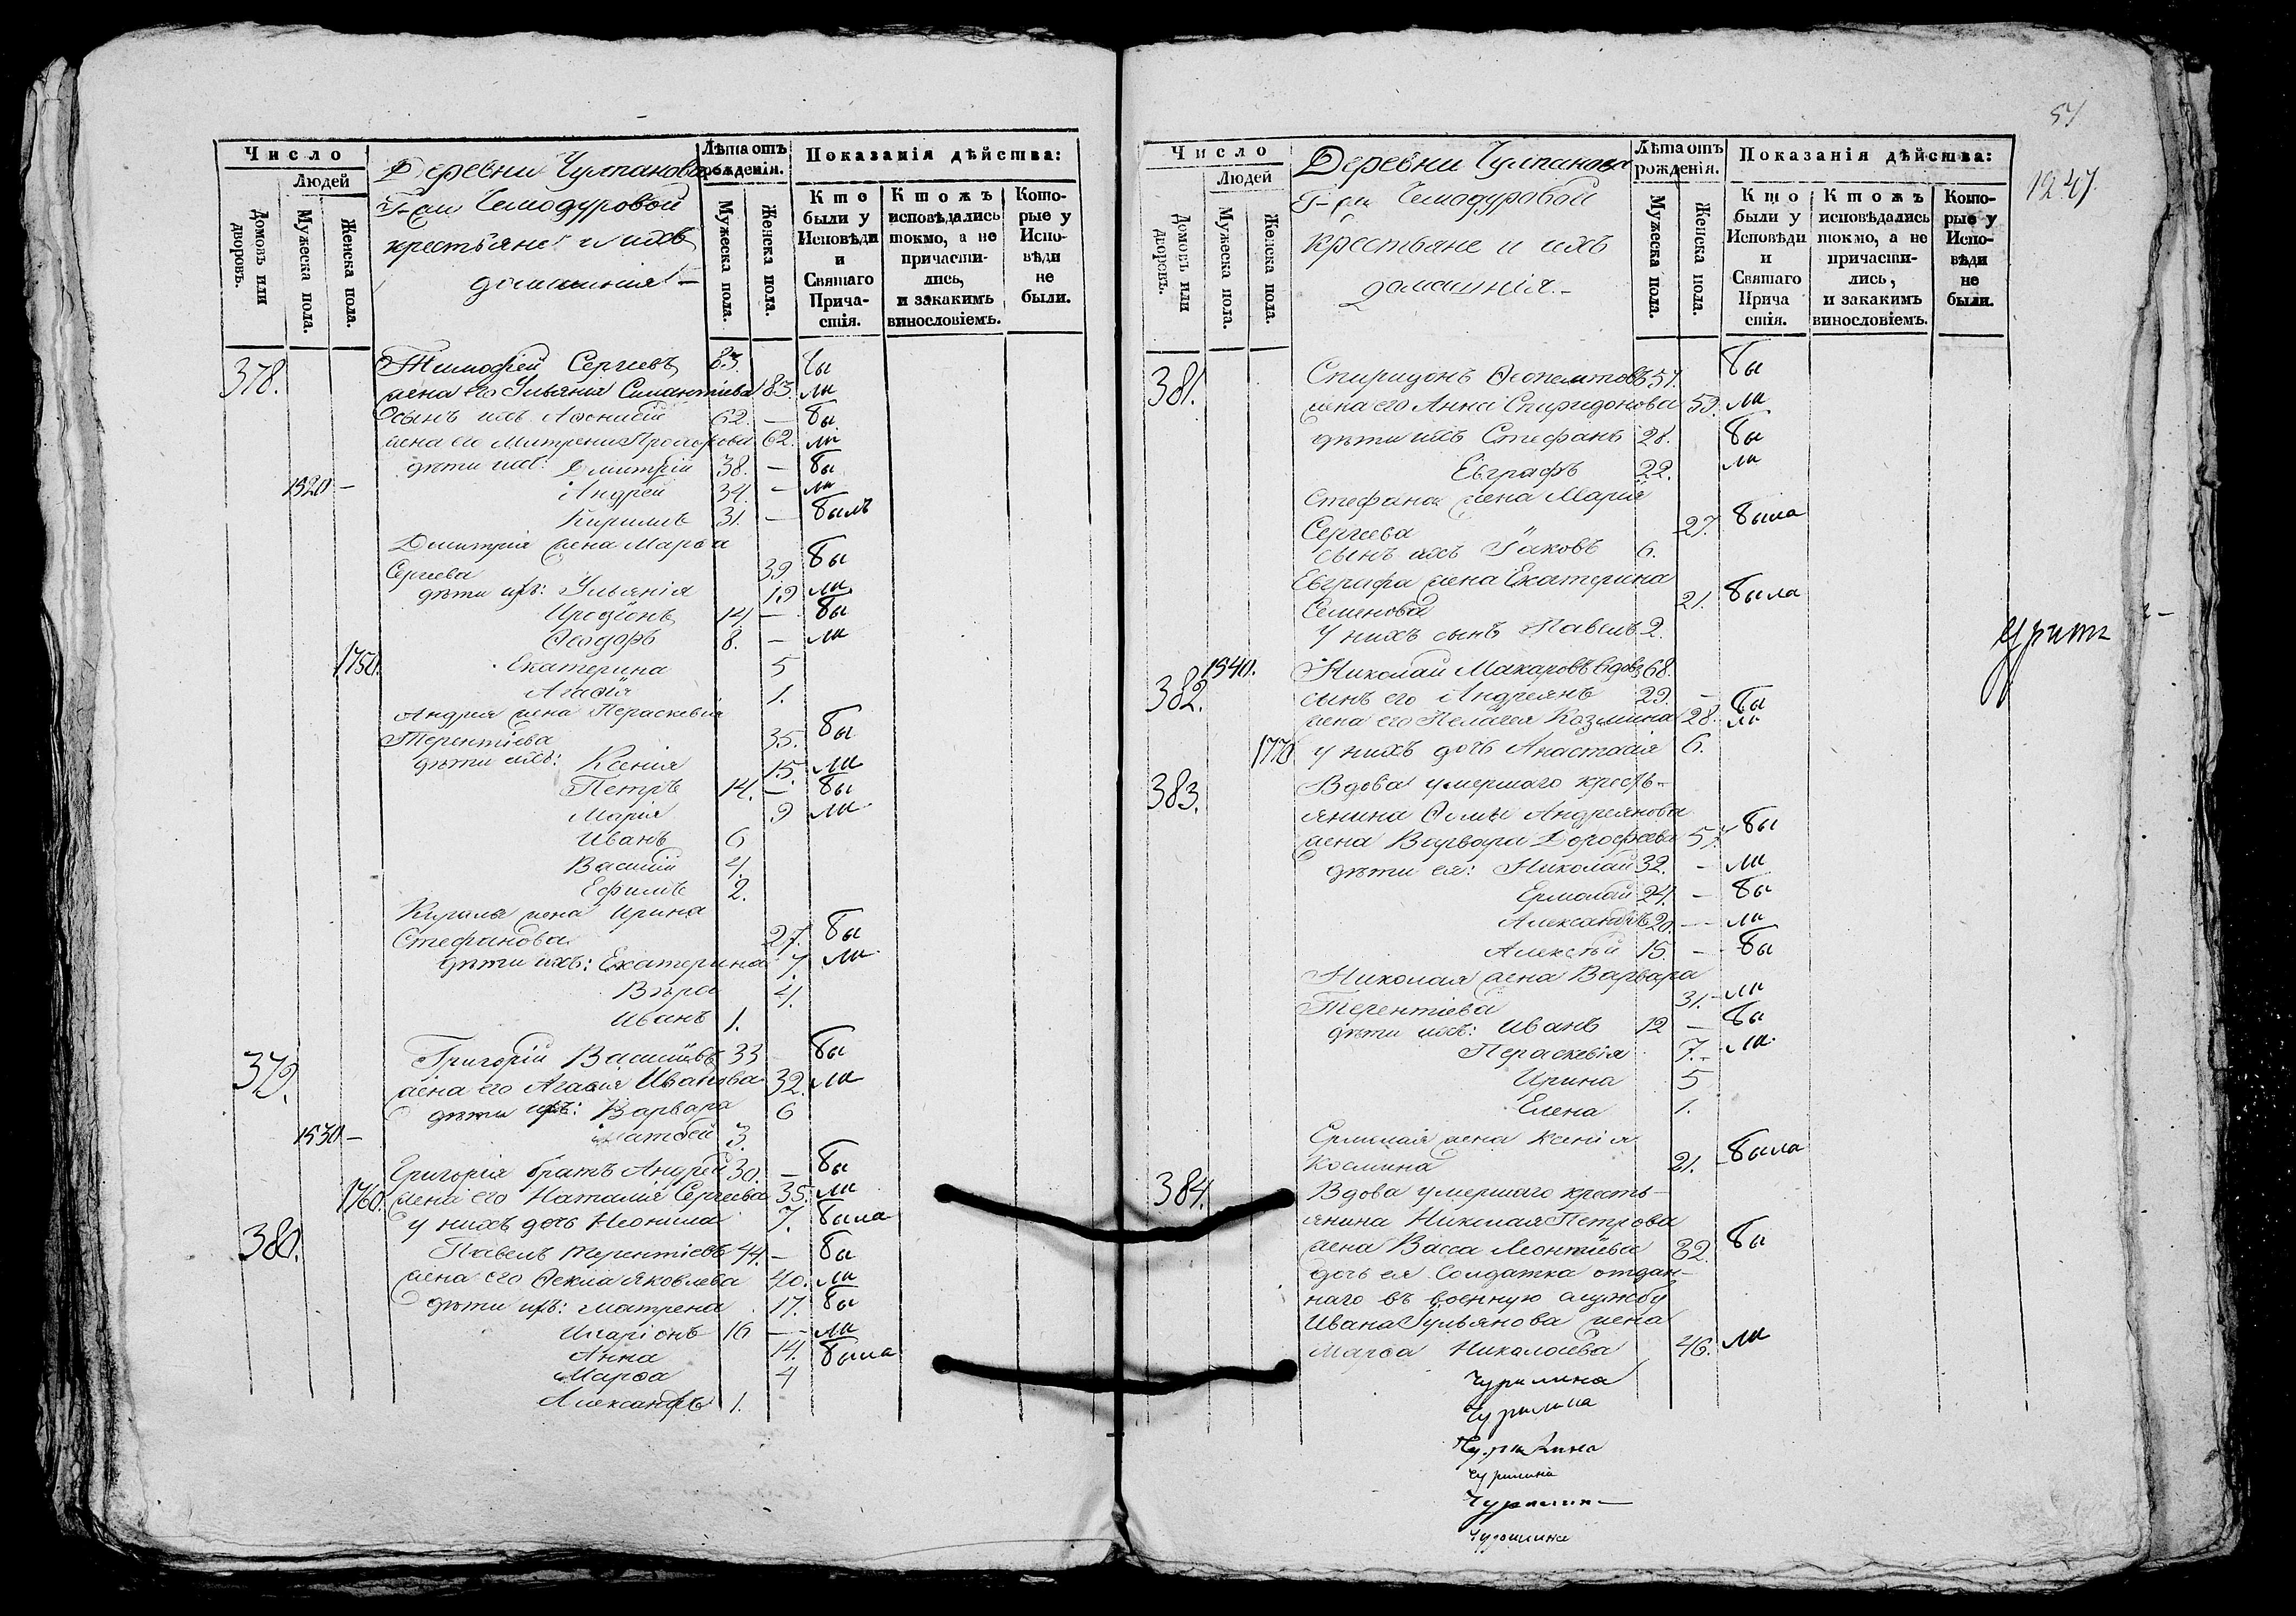 Число
Людей
Домовъ или дворовъ.
Мужеска пола.
Женска пола.
Деревни Чулпанова
Г-жи Чемодуровой
крестьяне и ихъ
домашнія.
Лѣта отъ рожденія.
Мужеска пола.
Женска пола.
Показанія дѣйства:
Кто были у Исповѣди и Святаго Причастія.
Ктожъ исповѣдались токмо, а не причастились, и закакимъ винословіемъ.
Которые у Исповѣди не были.
378. Тимофей Сергѣевъ 83. бы
жена его Ульянія 83. ли
сынъ ихъ 62. — бы
жена его Матрена 62. ли
дѣти ихъ: Дмитрій 38. — бы
1520 — Андрей 34. — ли
Кирилъ 31. — былъ
Дмитрія жена Марѳа
Сергѣева 39. бы
дѣти ихъ: Ульянія 19 ли
Иродіонъ 14. — бы
Ѳеодоръ 8. — ли
1750. Екатерина 5
Агаѳія 1.
Андрея жена Пераскевія
Терентіева 35. бы
дѣти ихъ: Ксенія 15. ли
Петръ 14. — бы
Марія 9 ли
Иванъ 6
Василій 4.
Ефимъ 2.
Кирила жена Ирина
Стефанова 27. бы
дѣти ихъ: Екатерина 7. ли
Вѣра 4.
Иванъ 1.
379. Григорій Васильевъ 33 — бы
жена его Агаѳія Иванова 32. ли
дѣти ихъ: Варвара 6
1530 — Матвей 3.
Григорія братъ Андрей 30. — бы
1760. жена его Наталія Сергѣева 35. ли
у нихъ дочь Неонила 7. была
380. Павелъ Терентіевъ 44. — бы
жена его Ѳекла Яковлева 40. ли
дѣти ихъ: Матрена 17. бы
Иларіонъ 16 — ли
Анна 14. была
Марѳа 4
Александръ 1.
57
1247.
Число
Людей
Домовъ или дворовъ.
Мужеска пола.
Женска пола.
Деревни Чулпанова
Г-жи Чемодуровой
крестьяне и ихъ
домашнія.
Лѣта отъ рожденія.
Мужеска пола.
Женска пола.
Показанія дѣйства:
Кто были у Исповѣди и Святаго Причастія.
Ктожъ исповѣдались токмо, а не причастились, и закакимъ винословіемъ.
Которые у Исповѣди не были.
381. Спиридонъ 57. бы
жена его Анна Спиридонова 53. ли
дѣти ихъ Стефанъ 28. бы
Евграфъ 22. ли
Стефана жена Марія
Сергѣева 27. была
сынъ ихъ Іаковъ 6.
Евграфа жена Екатерина
Семенова 21. была
у нихъ сынъ Павелъ 2.
1540.
382. Николай Макаровъ вдовъ 68.
сынъ его Андреянъ 29. — бы
жена его Пелагея Козмина 28. ли
1770 у нихъ дочь Анастасія 6.
383. Вдова умершаго кресть-
янина Ѳомы Андреянова
жена Варвара Дорофѣева 57. бы
дѣти ея: Николай 32. — ли
Ермолай 24. — бы
Александръ 20. — ли
Алексѣй 15 — бы
Николая жена Варвара
Терентіева 31. ли
дѣти ихъ: Иванъ 12 — бы
Пераскевія 7. ли
Ирина 5
Елена 1.
Ермолая жена Ксенія
Космина 21. была
384. Вдова умершаго кресть-
янина Николая Петрова
жена Васса Леонтіева 82. бы
дочь ея Солдатка отдан-
наго въ военную службу
Ивана Ульянова жена
Марѳа Николаева 46. ли
Чурилина
Чурилина
Чурилина